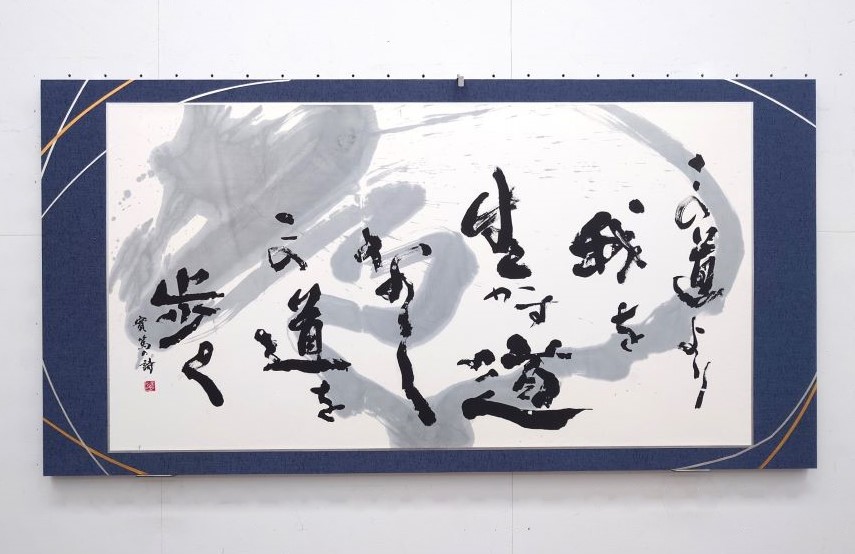 この道より
我を
生かす道
なし
この道を
歩く
實篤の詩